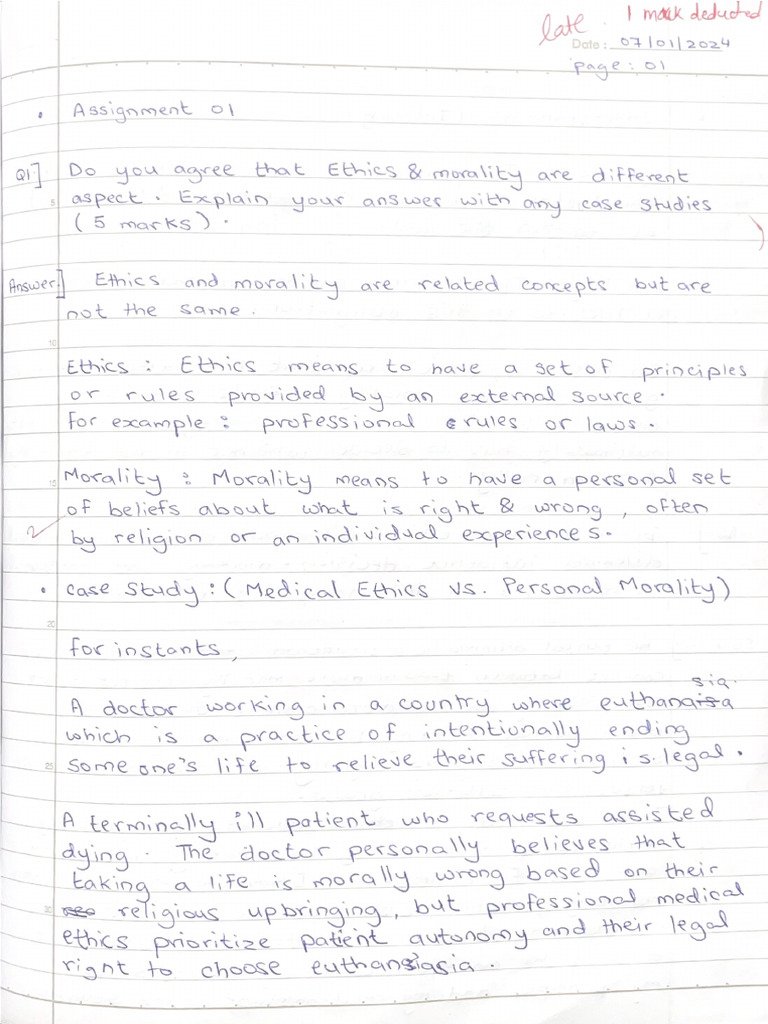 late. 1 mark deducted
Date: 07/01/2024
page: 01
• Assignment 01
Q1] Do you agree that Ethics & morality are different
5 aspect. Explain your answer with any case studies
(5 marks).
Answer] Ethics and morality are related concepts but are
not the same.
10
Ethics: Ethics means to have a set of principles
or rules provided by an external source.
for example: professional rules or laws.
15 Morality: Morality means to have a personal set
of beliefs about what is right & wrong, often
2 by religion or an individual experiences.
• case study: (Medical Ethics vs. Personal Morality)
20
for instants,
sia.
A doctor working in a country where euthanaisa
which is a practice of intentionally ending
25 someone's life to relieve their suffering is legal.
A terminally ill patient who requests assisted
dying. The doctor personally believes that
taking a life is morally wrong based on their
30 religious upbringing, but professional medical
ethics prioritize patient autonomy and their legal
right to choose euthansiasia.